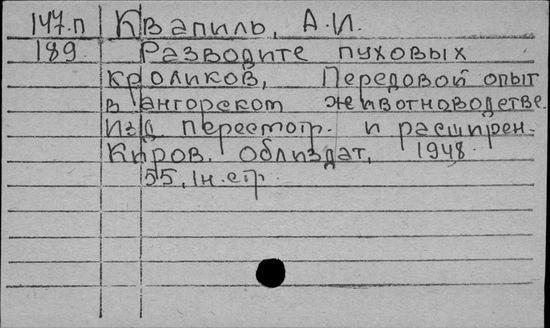 147.п Квапиль, А.И.
189 Разводите пуховых
кроликов, Передовой опыт
в ангорском животноводстве.
Изд пересмотр. и расширен.
Киров. Облиздат, 1948
55, 1н.стр.